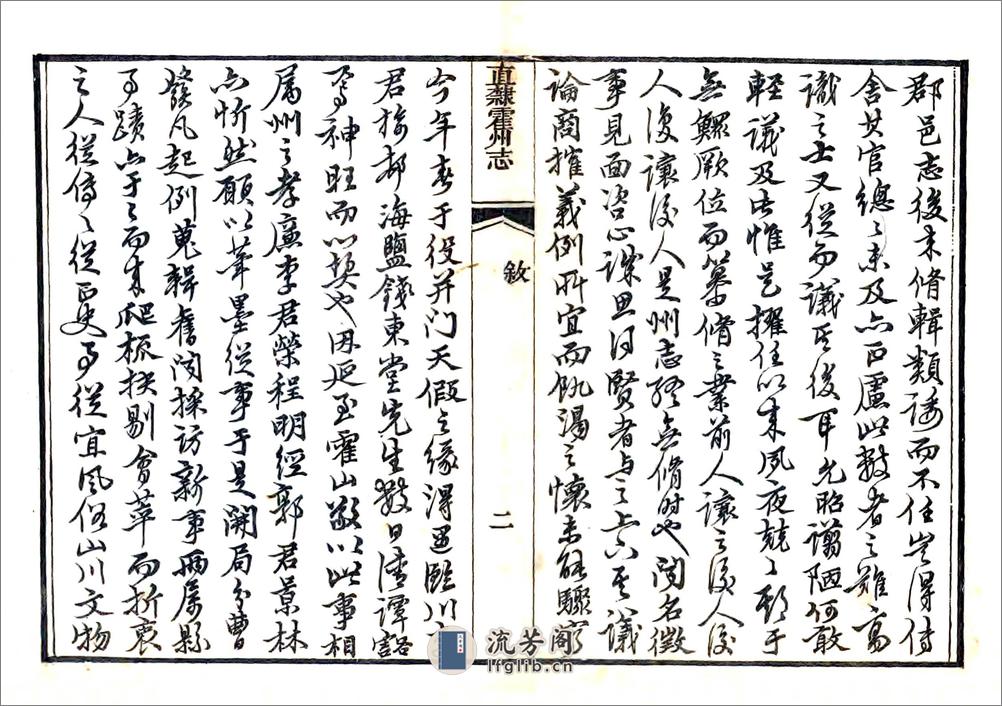 郡邑志後未脩輯類諉而不任豈得傳
舍其官總之未及亦正慮此數者之難高
識之士又從而議其後耳允昭譾陋何敢
輕議及此惟是擢任以來夙夜兢兢 于
無鰥厥位而纂脩之業前人讓之後人後
人復讓後人是州志終無脩時也聞名徵
事見面咨心 思得賢者与之上下其議
論商搉義例所宜而飢渴之懷未能驟
直隸霍州志
敘
二
今年春于役并门天假之緣得遇臨川
君梅邨海鹽錢東堂先生數日清譚谿
焉神旺而心契也 延至霍山敬以此事相
属州之孝廉李君榮程明經郭君景林
亦忻然願以筆墨從事于是開局分曹
發凡起例蒐輯舊聞採访新事兩属縣
事蹟亦于之而来爬梳抉剔會萃而折衷
之人從傳之從正史事從宜風俗山川文物
流芳阁
lfglib.cn